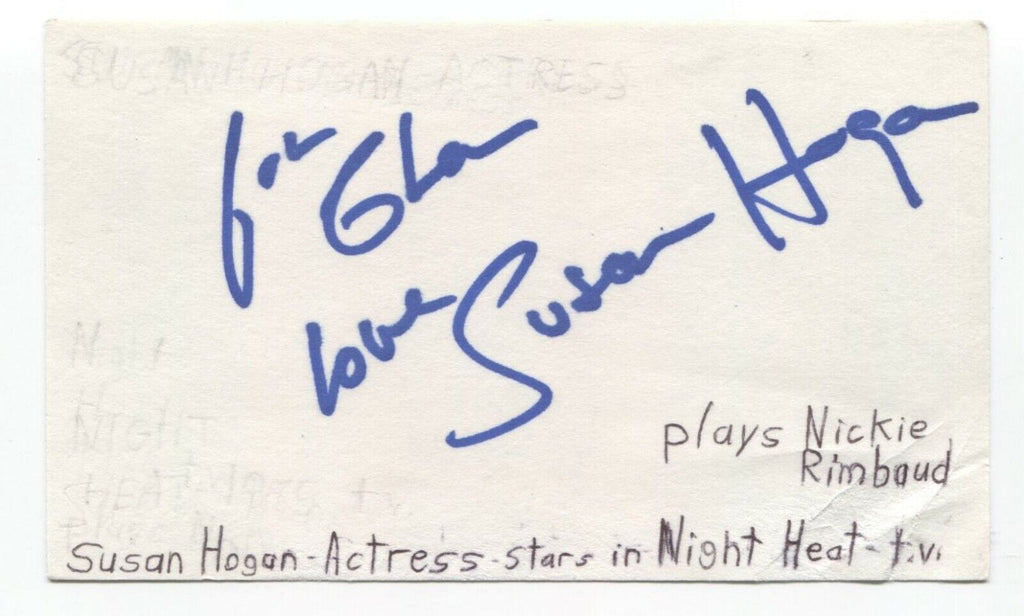 SUSAN HOGAN ACTRESS
for Glen
love Susan Hogan
NIGHT
HEAT
t.v.
plays Nickie
Rimbaud
Susan Hogan-Actress-stars in Night Heat-t.v.